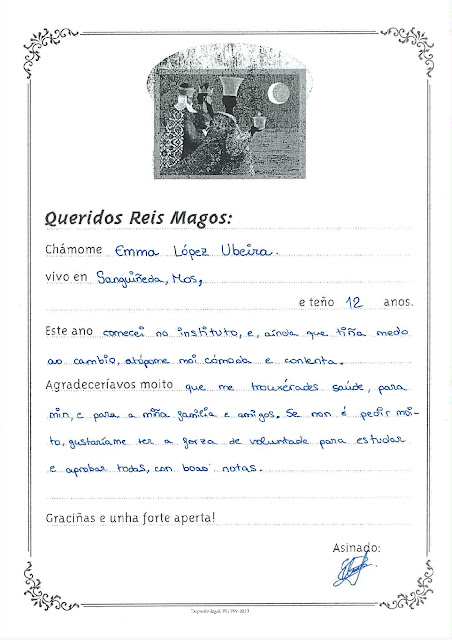 Queridos Reis Magos:
Chámome Emma López Ubeira.
vivo en Sanguiñeda, Mos,
e teño 12 anos.
Este ano comecei no instituto, e, aínda que tiña medo
ao cambio, atópome moi cómoda e contenta.
Agradeceríavos moito que me trouxérades saúde, para
min, e para a miña familia e amigos. Se non é pedir moi-
to, gustaríame ter a forza de voluntade para estudar
e aprobar todas, con boas notas.
Graciñas e unha forte aperta!
Asinado: